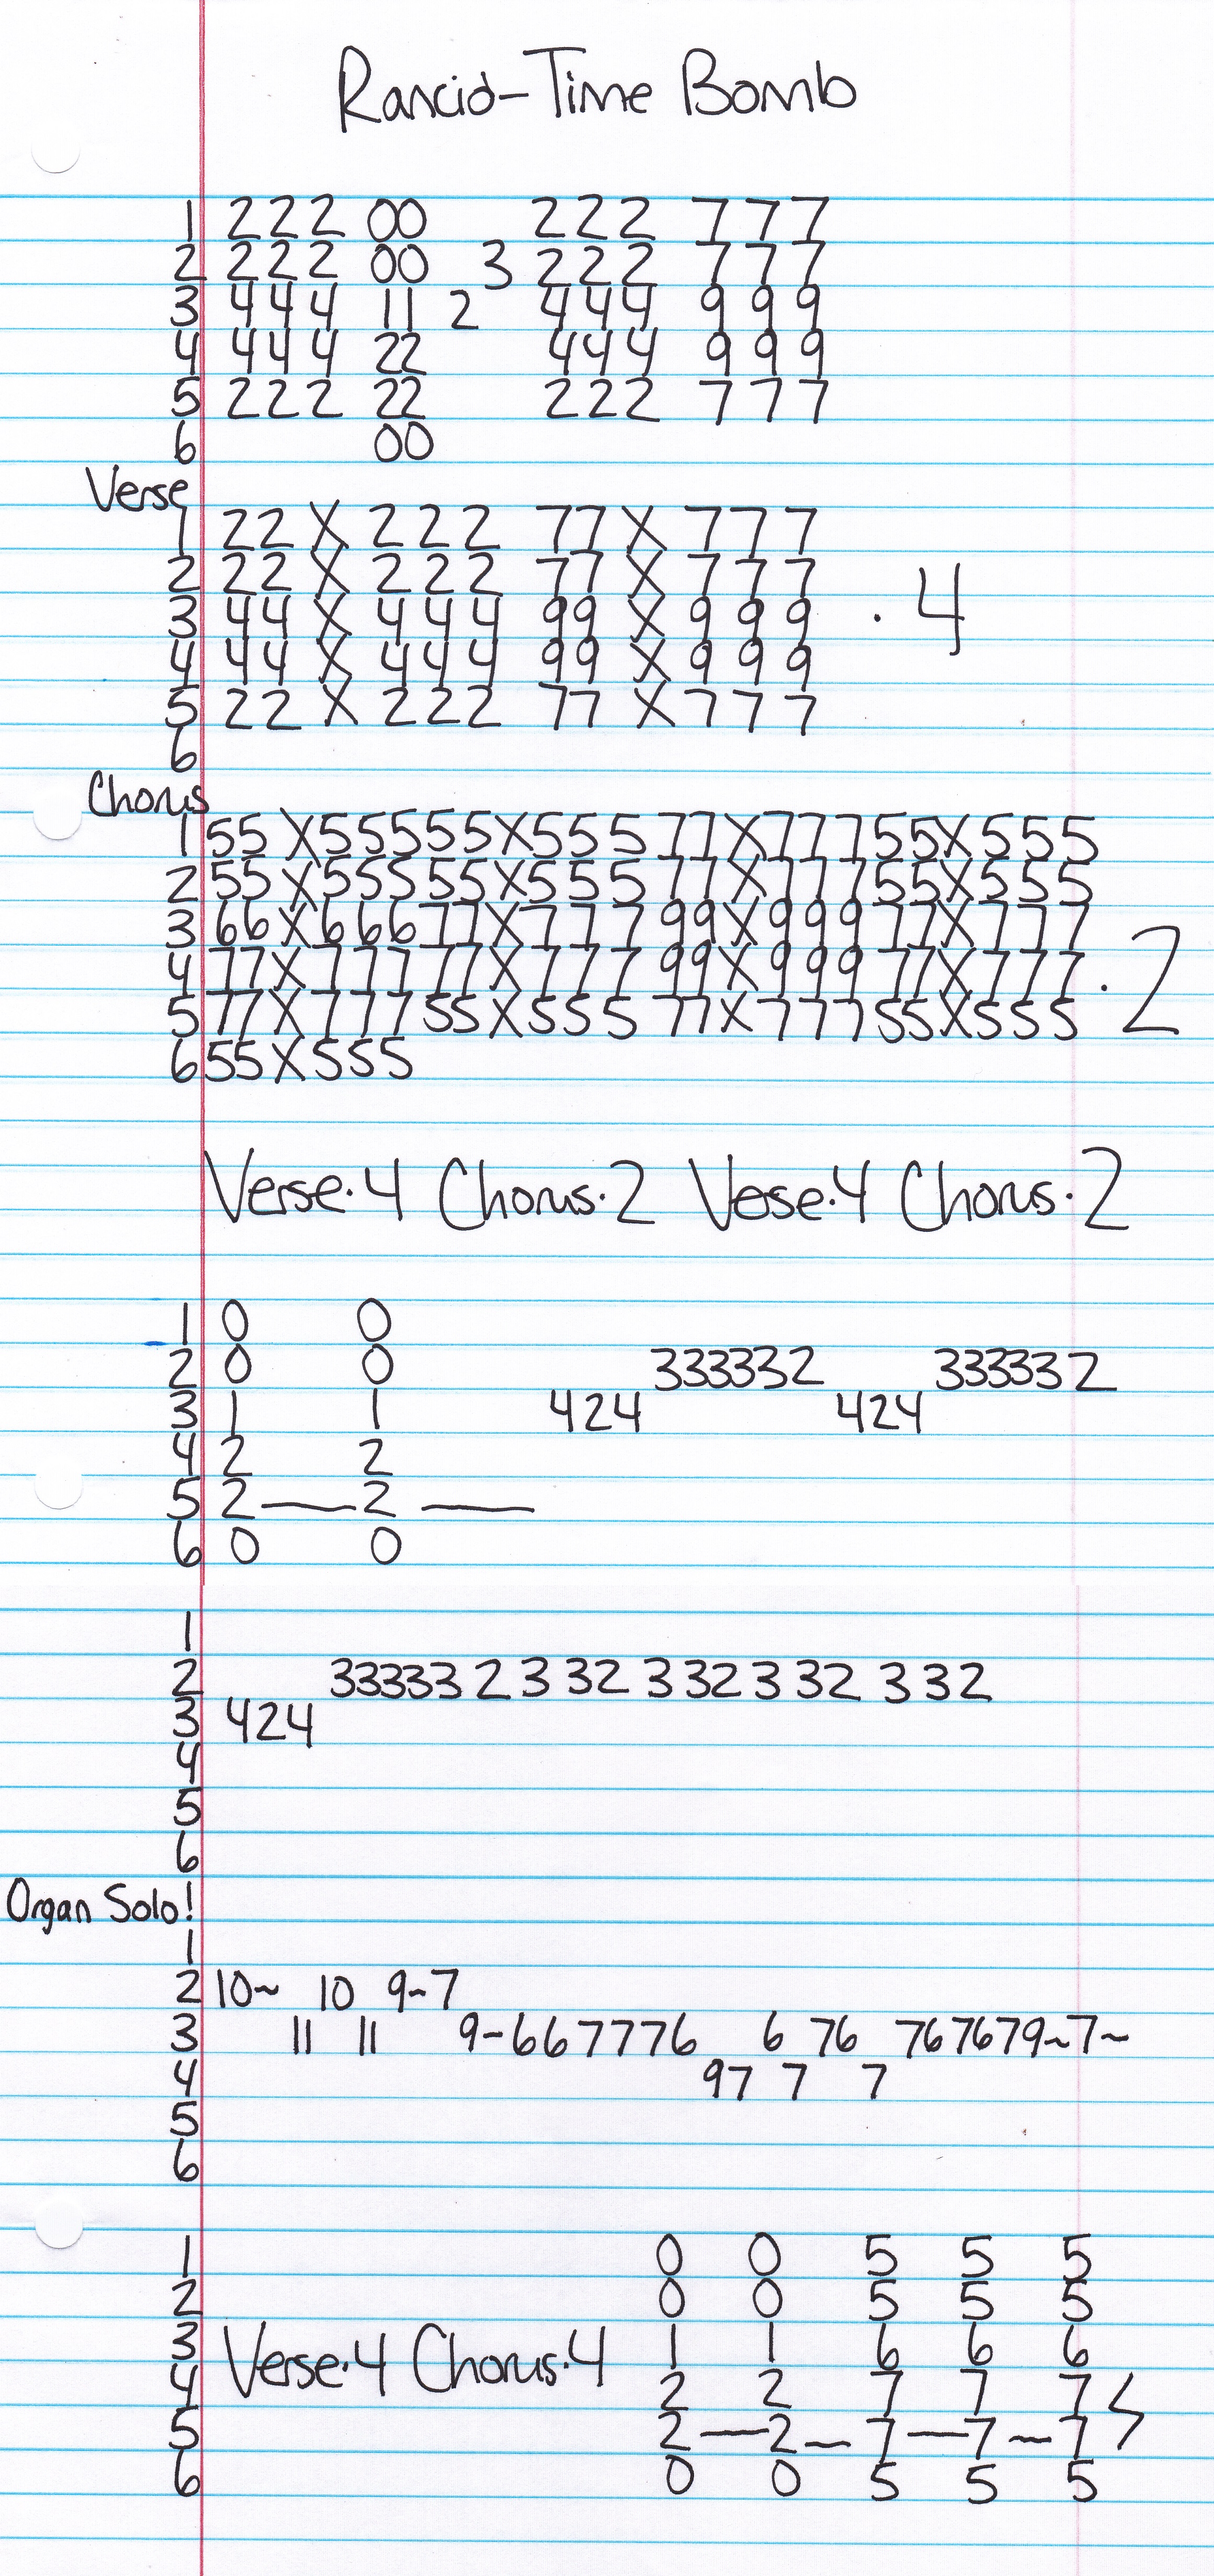 Rancid-Time Bomb
1 222 00 222 777
2 222 00 3 222 777
3 444 11 2 444 999
4 444 22 444 999
5 222 22 222 777
6 00
Verse
1 22 X 222 77 X 777
2 22 X 222 77 X 777
3 44 X 444 99 X 999 · 4
4 44 X 444 99 X 999
5 22 X 222 77 X 777
6
Chorus
1 55X55555X55577X77755X555
2 55X55555X55577X77755X555
3 66X66677X77799X99977X777
4 77X77777X77799X99977X777 · 2
5 77X77755X55577X77755X555
6 55X555
Verse·4 Chorus·2 Vese·4 Chorus·2
1 0 0
2 0 0 333332 333332
3 1 1 424 424
4 2 2
5 2—2—
6 0 0
1
2 33333 2 3 32 3 32 3 32 3 32
3 424
4
5
6
Organ Solo!
1
2 10~ 10 9~7
3 11 11 9-6677776 6 76 767679~7~
4 97 7 7
5
6
1 0 0 5 5 5
2 0 0 5 5 5
3 Verse·4 Chorus·4 1 1 6 6 6
4 2 2 7 7 7
5 2—2—7—7~7
6 0 0 5 5 5